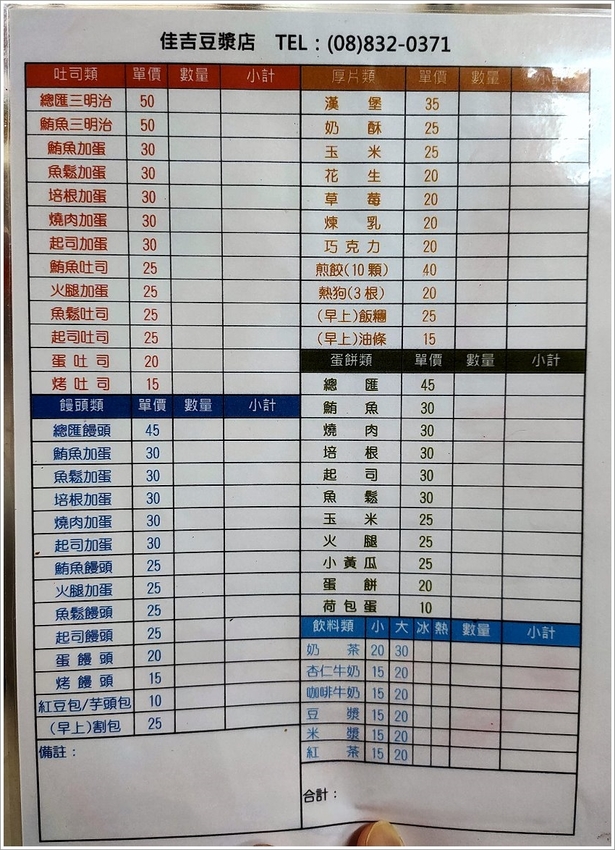 佳吉豆漿店 TEL：(08)832-0371
吐司類 單價 數量 小計
總匯三明治 50
鮪魚三明治 50
鮪魚加蛋 30
魚鬆加蛋 30
培根加蛋 30
燒肉加蛋 30
起司加蛋 30
鮪魚吐司 25
火腿加蛋 25
魚鬆吐司 25
起司吐司 25
蛋吐司 20
烤吐司 15
饅頭類 單價 數量 小計
總匯饅頭 45
鮪魚加蛋 30
魚鬆加蛋 30
培根加蛋 30
燒肉加蛋 30
起司加蛋 30
鮪魚饅頭 25
火腿加蛋 25
魚鬆饅頭 25
起司饅頭 25
蛋饅頭 20
烤饅頭 15
紅豆包/芋頭包 10
(早上)割包 25
備註：
厚片類 單價 數量 小計
漢堡 35
奶酥 25
玉米 25
花生 20
草莓 20
煉乳 20
巧克力 20
煎餃(10顆) 40
熱狗(3根) 20
(早上)飯糰 25
(早上)油條 15
蛋餅類 單價 數量 小計
總匯 45
鮪魚 30
燒肉 30
培根 30
起司 30
魚鬆 30
玉米 25
火腿 25
小黃瓜 25
蛋餅 20
荷包蛋 10
飲料類 小 大 冰 熱 數量 小計
奶茶 20 30
杏仁牛奶 15 20
咖啡牛奶 15 20
豆漿 15 20
米漿 15 20
紅茶 15 20
合計：